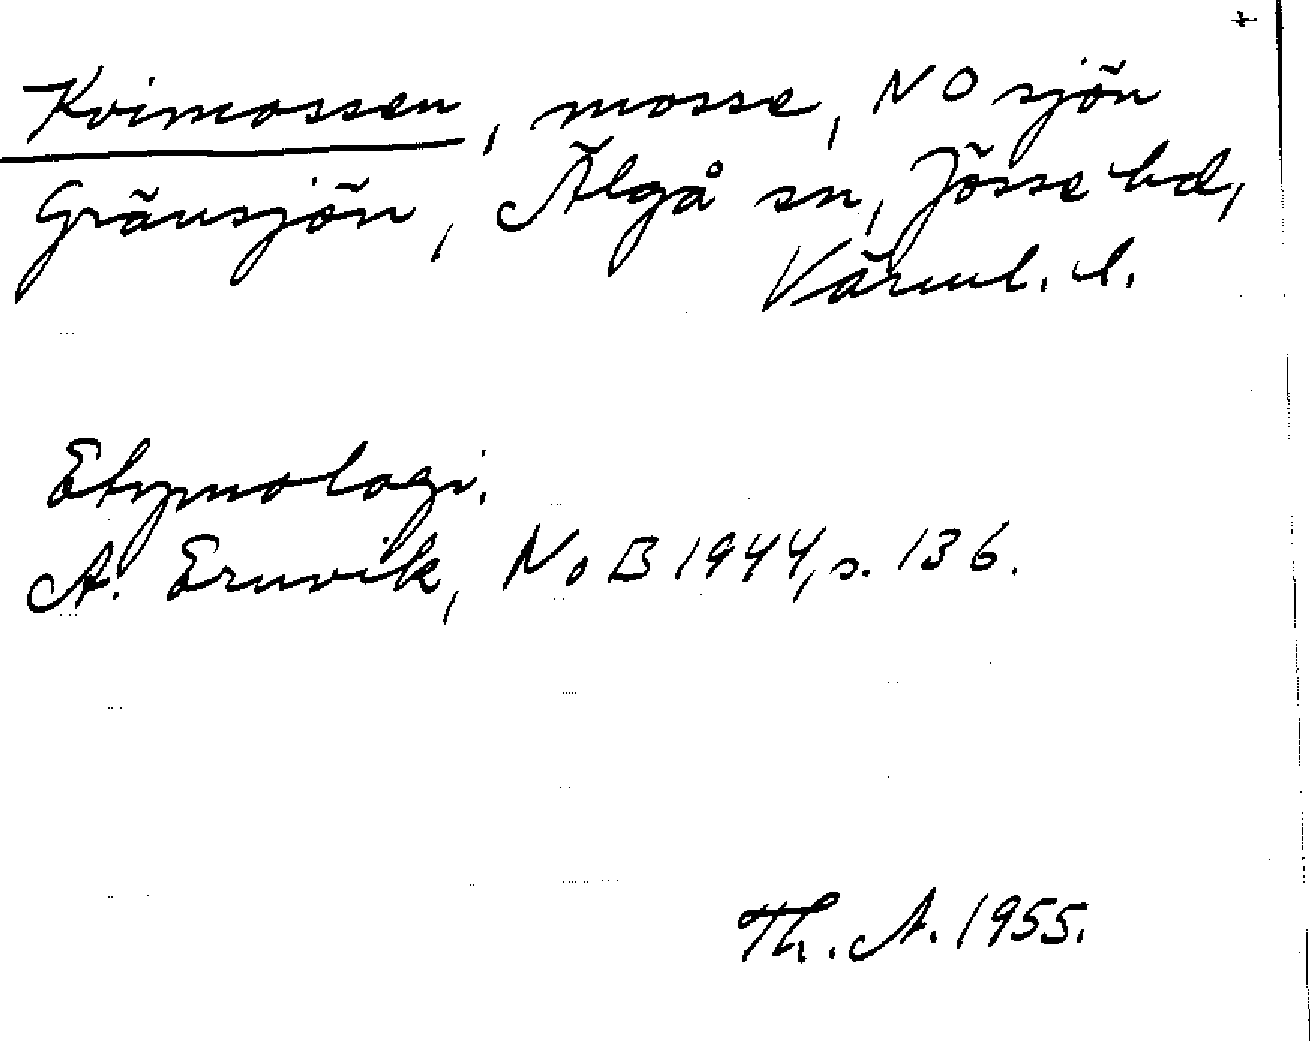 Kvimossen, mosse, NO sjön
Gränsjön, Älgå sn, Jösse hd,
Värml. l.
Etymologi.
A. Ernvik, NoB 1944, s. 136.
Th. A. 1955.